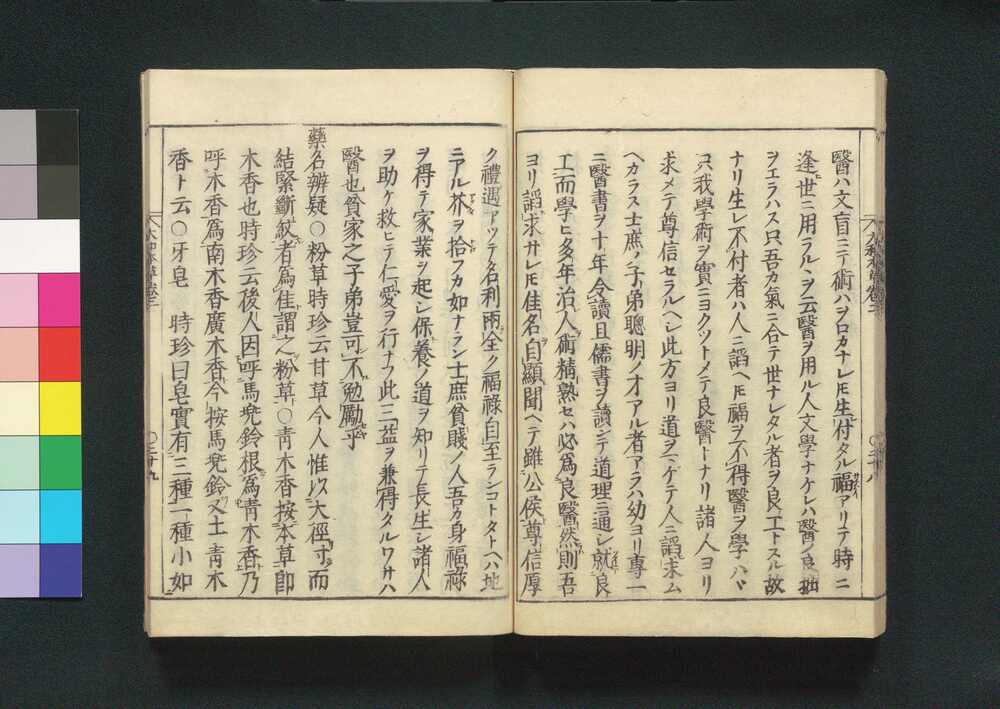 醫ハ文盲ニテ術ハヲロカナレ𪜈生付タル福アリテ時ニ
逢世ニ用ラルヽヲ云醫ヲ用ル人文學ナケレハ醫ノ良拙
ヲエラハス只吾カ氣ニ合テ世ナレタル者ヲ良工トスル故
ナリ生レ不付者ハ人ニ謟ヘ𪜈福ヲ不得醫ヲ學ハヽ
只我學術ヲ實ニヨクツトメテ良醫トナリ諸人ヨリ
求メテ尊信セラルヘシ此方ヨリ道ヲマゲテ人ニ謟求ム
ヘカラス士庶ノ子弟聰明ノ才アル者アラハ幼ヨリ專一
ニ醫書ヲ十年令讀且儒書ヲ讀シテ道理ニ通シ就良
工而學ヒ多年治人術精熟セハ必爲良醫然則吾
ヨリ謟求サレ𪜈佳名自顯聞ヘテ雖公侯尊信厚
ク禮遇アツテ名利兩全ク福祿自至ランコトタトヘハ地
ニアル芥ヲ拾フカ如ナラン士庶貧賤ノ人吾カ身福祿
ヲ得テ家業ヲ起シ保養ノ道ヲ知リテ長生シ諸人
ヲ助ケ救ヒテ仁愛ヲ行ナフ此三益ヲ兼得タルワサハ
醫也貧家之子弟豈可不勉勵乎
藥名辨疑○粉草時珍云甘草今人惟以大徑寸而
結緊斷紋者爲佳謂之粉草○靑木香按本草卽
木香也時珍云後人因呼馬兜鈴根爲靑木香乃
呼木香爲南木香廣木香今按馬兜鈴又土靑木
香ト云○牙皂 時珍曰皂實有三種一種小如
○三十八
○三十九